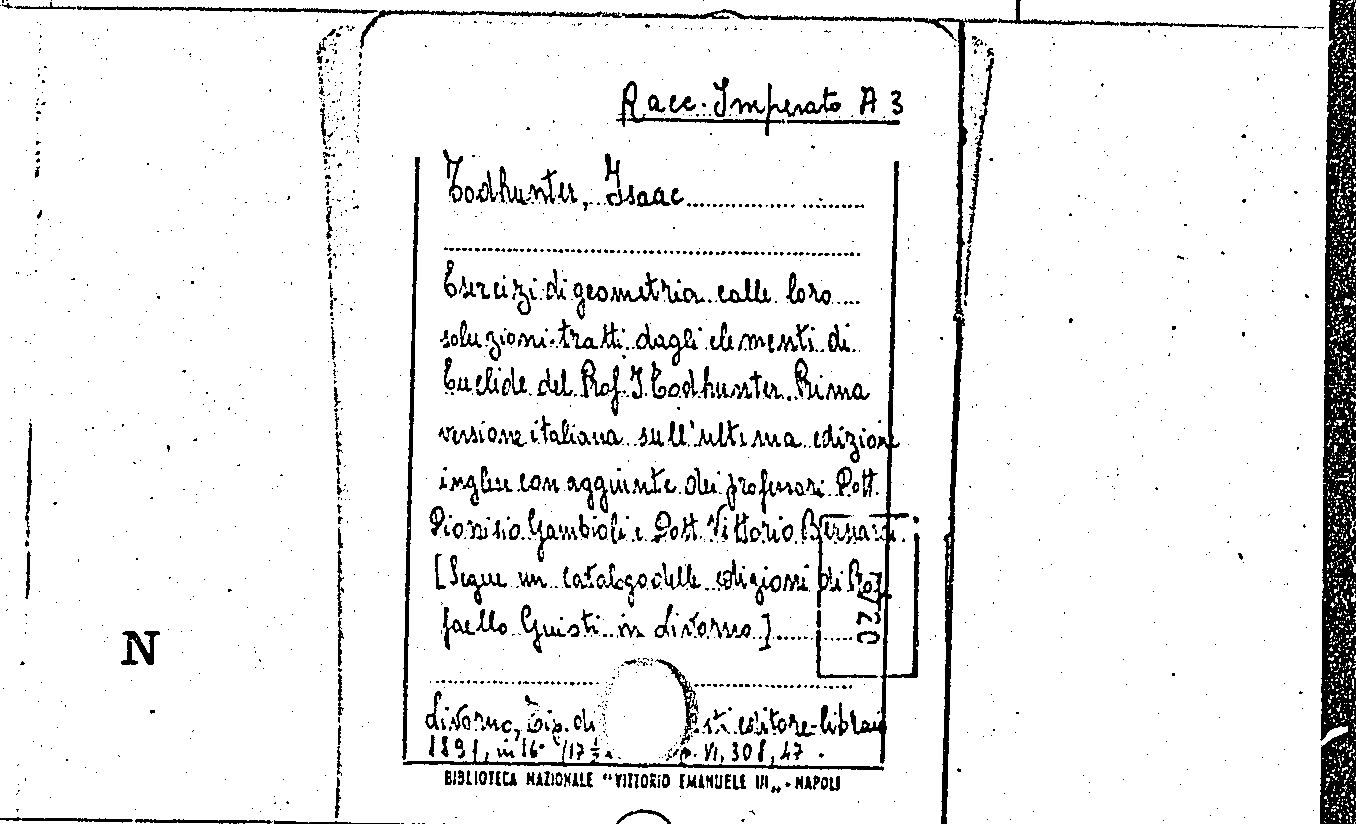 Racc. Imperato A 3
Todhunter, Isaac
Esercizi di geometria colle loro
soluzioni tratti dagli elementi di
Euclide del Prof. I. Todhunter. Prima
versione italiana sull'ultima edizione
inglese con aggiunte dei professori Dott.
Dionisio Gambioli e Dott. Vittorio Bernardi.
[Segue un catalogo delle edizioni di Raf
faello Giusti in Livorno]
20
N
Livorno, Tip. di sti editore-libraio
1891, in 16° VI, 308, 47.
BIBLIOTECA NAZIONALE "VITTORIO EMANUELE III„ - NAPOLI